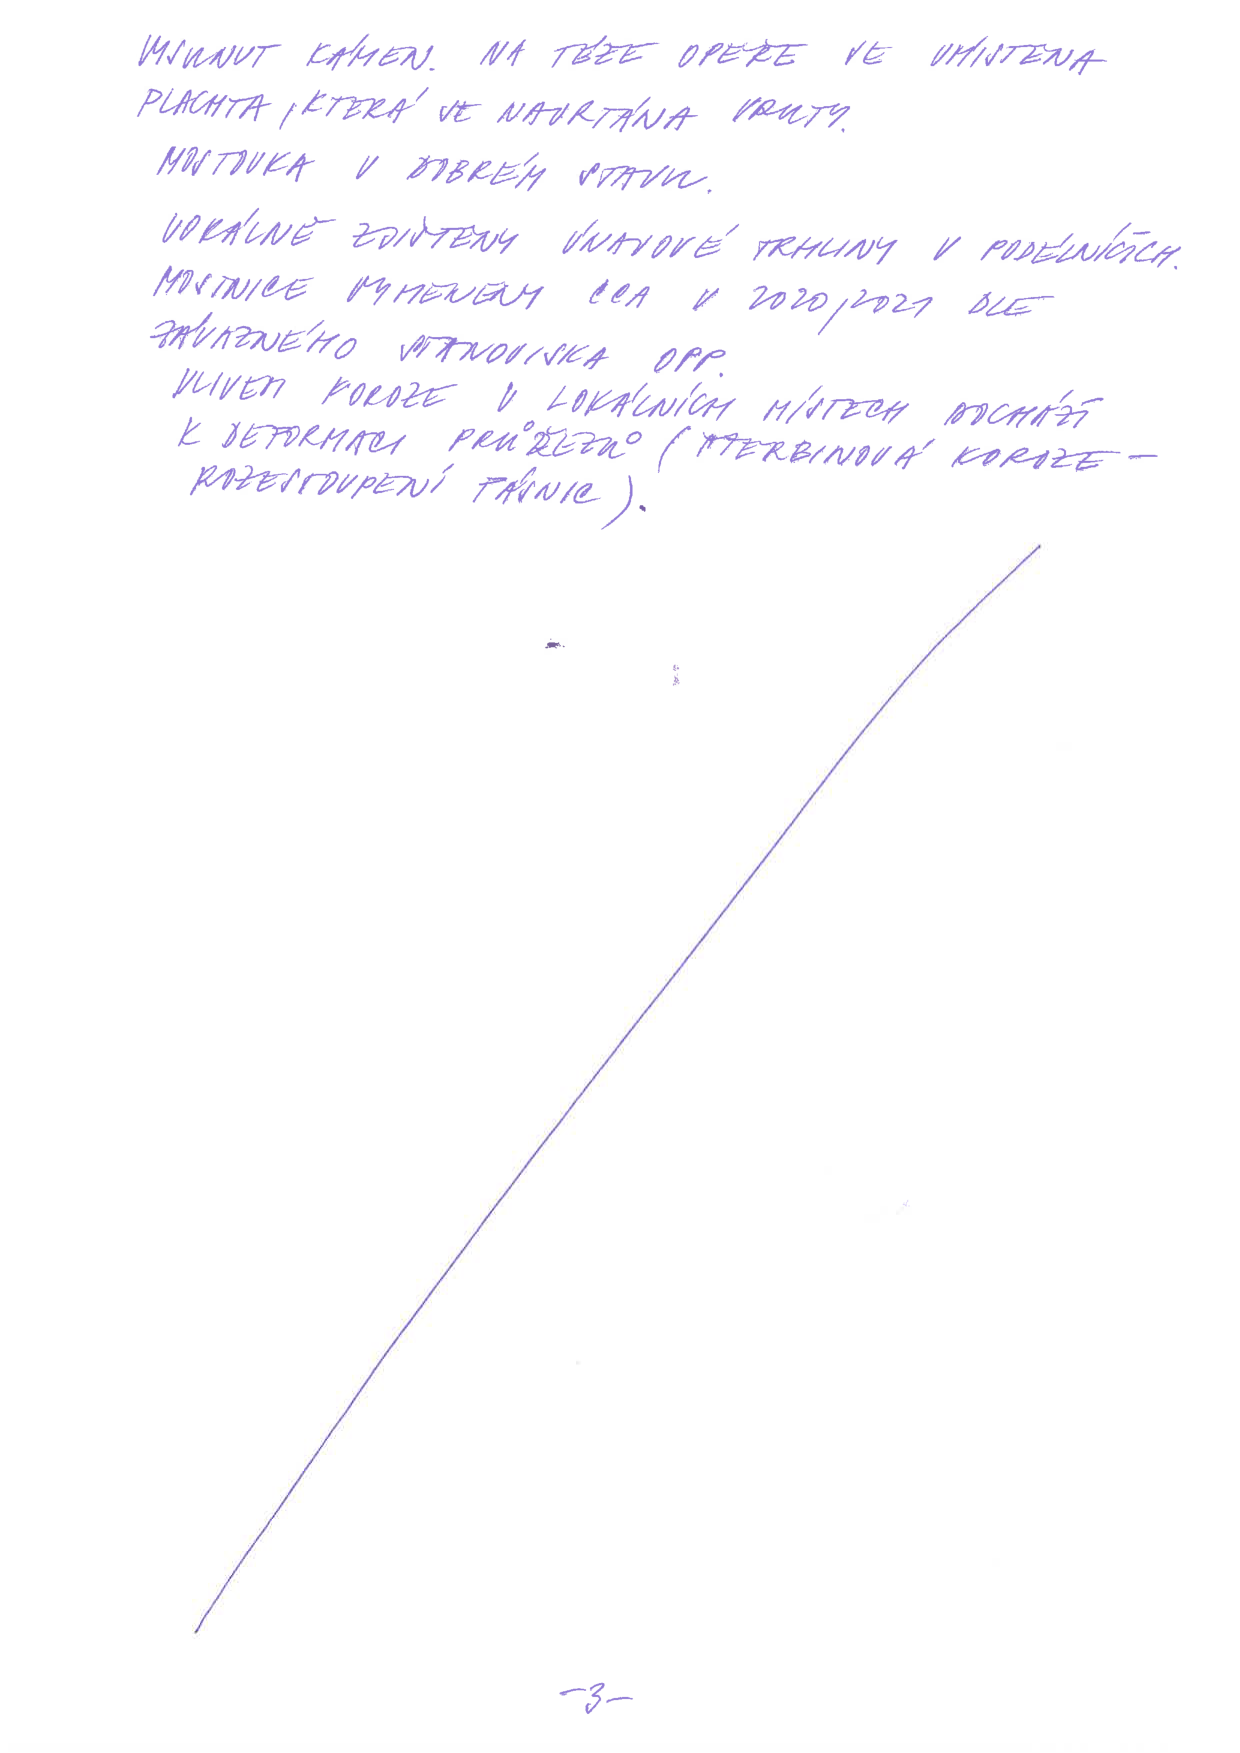 VYSUNUT KÁMEN. NA TÉŽE OPĚŘE JE UMÍSTĚNA
PLACHTA, KTERÁ JE NAVRTÁNA VRUTY.
MOSTOVKA V DOBRÉM STAVU.
ZJIŠTĚNY ÚNAVOVÉ TRHLINY V PODÉLNÍCÍCH.
MOSTNICE VYMĚNĚNY CCA V 2020/2021 DLE
ZÁVAZNÉHO STANOVISKA OPP.
VLIVEM KOROZE V LOKÁLNÍCH MÍSTECH DOCHÁZÍ
K DEFORMACI PRŮŘEZŮ (ŠTĚRBINOVÁ KOROZE –
ROZESTOUPENÍ PÁSNIC).
–3–